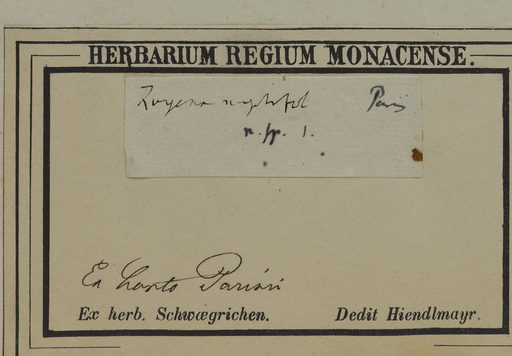 HERBARIUM REGIUM MONACENSE.
Royena Paris
n. sp. 1.
Ex horto Parisin
Ex herb. Schwægrichen. Dedit Hiendlmayr.